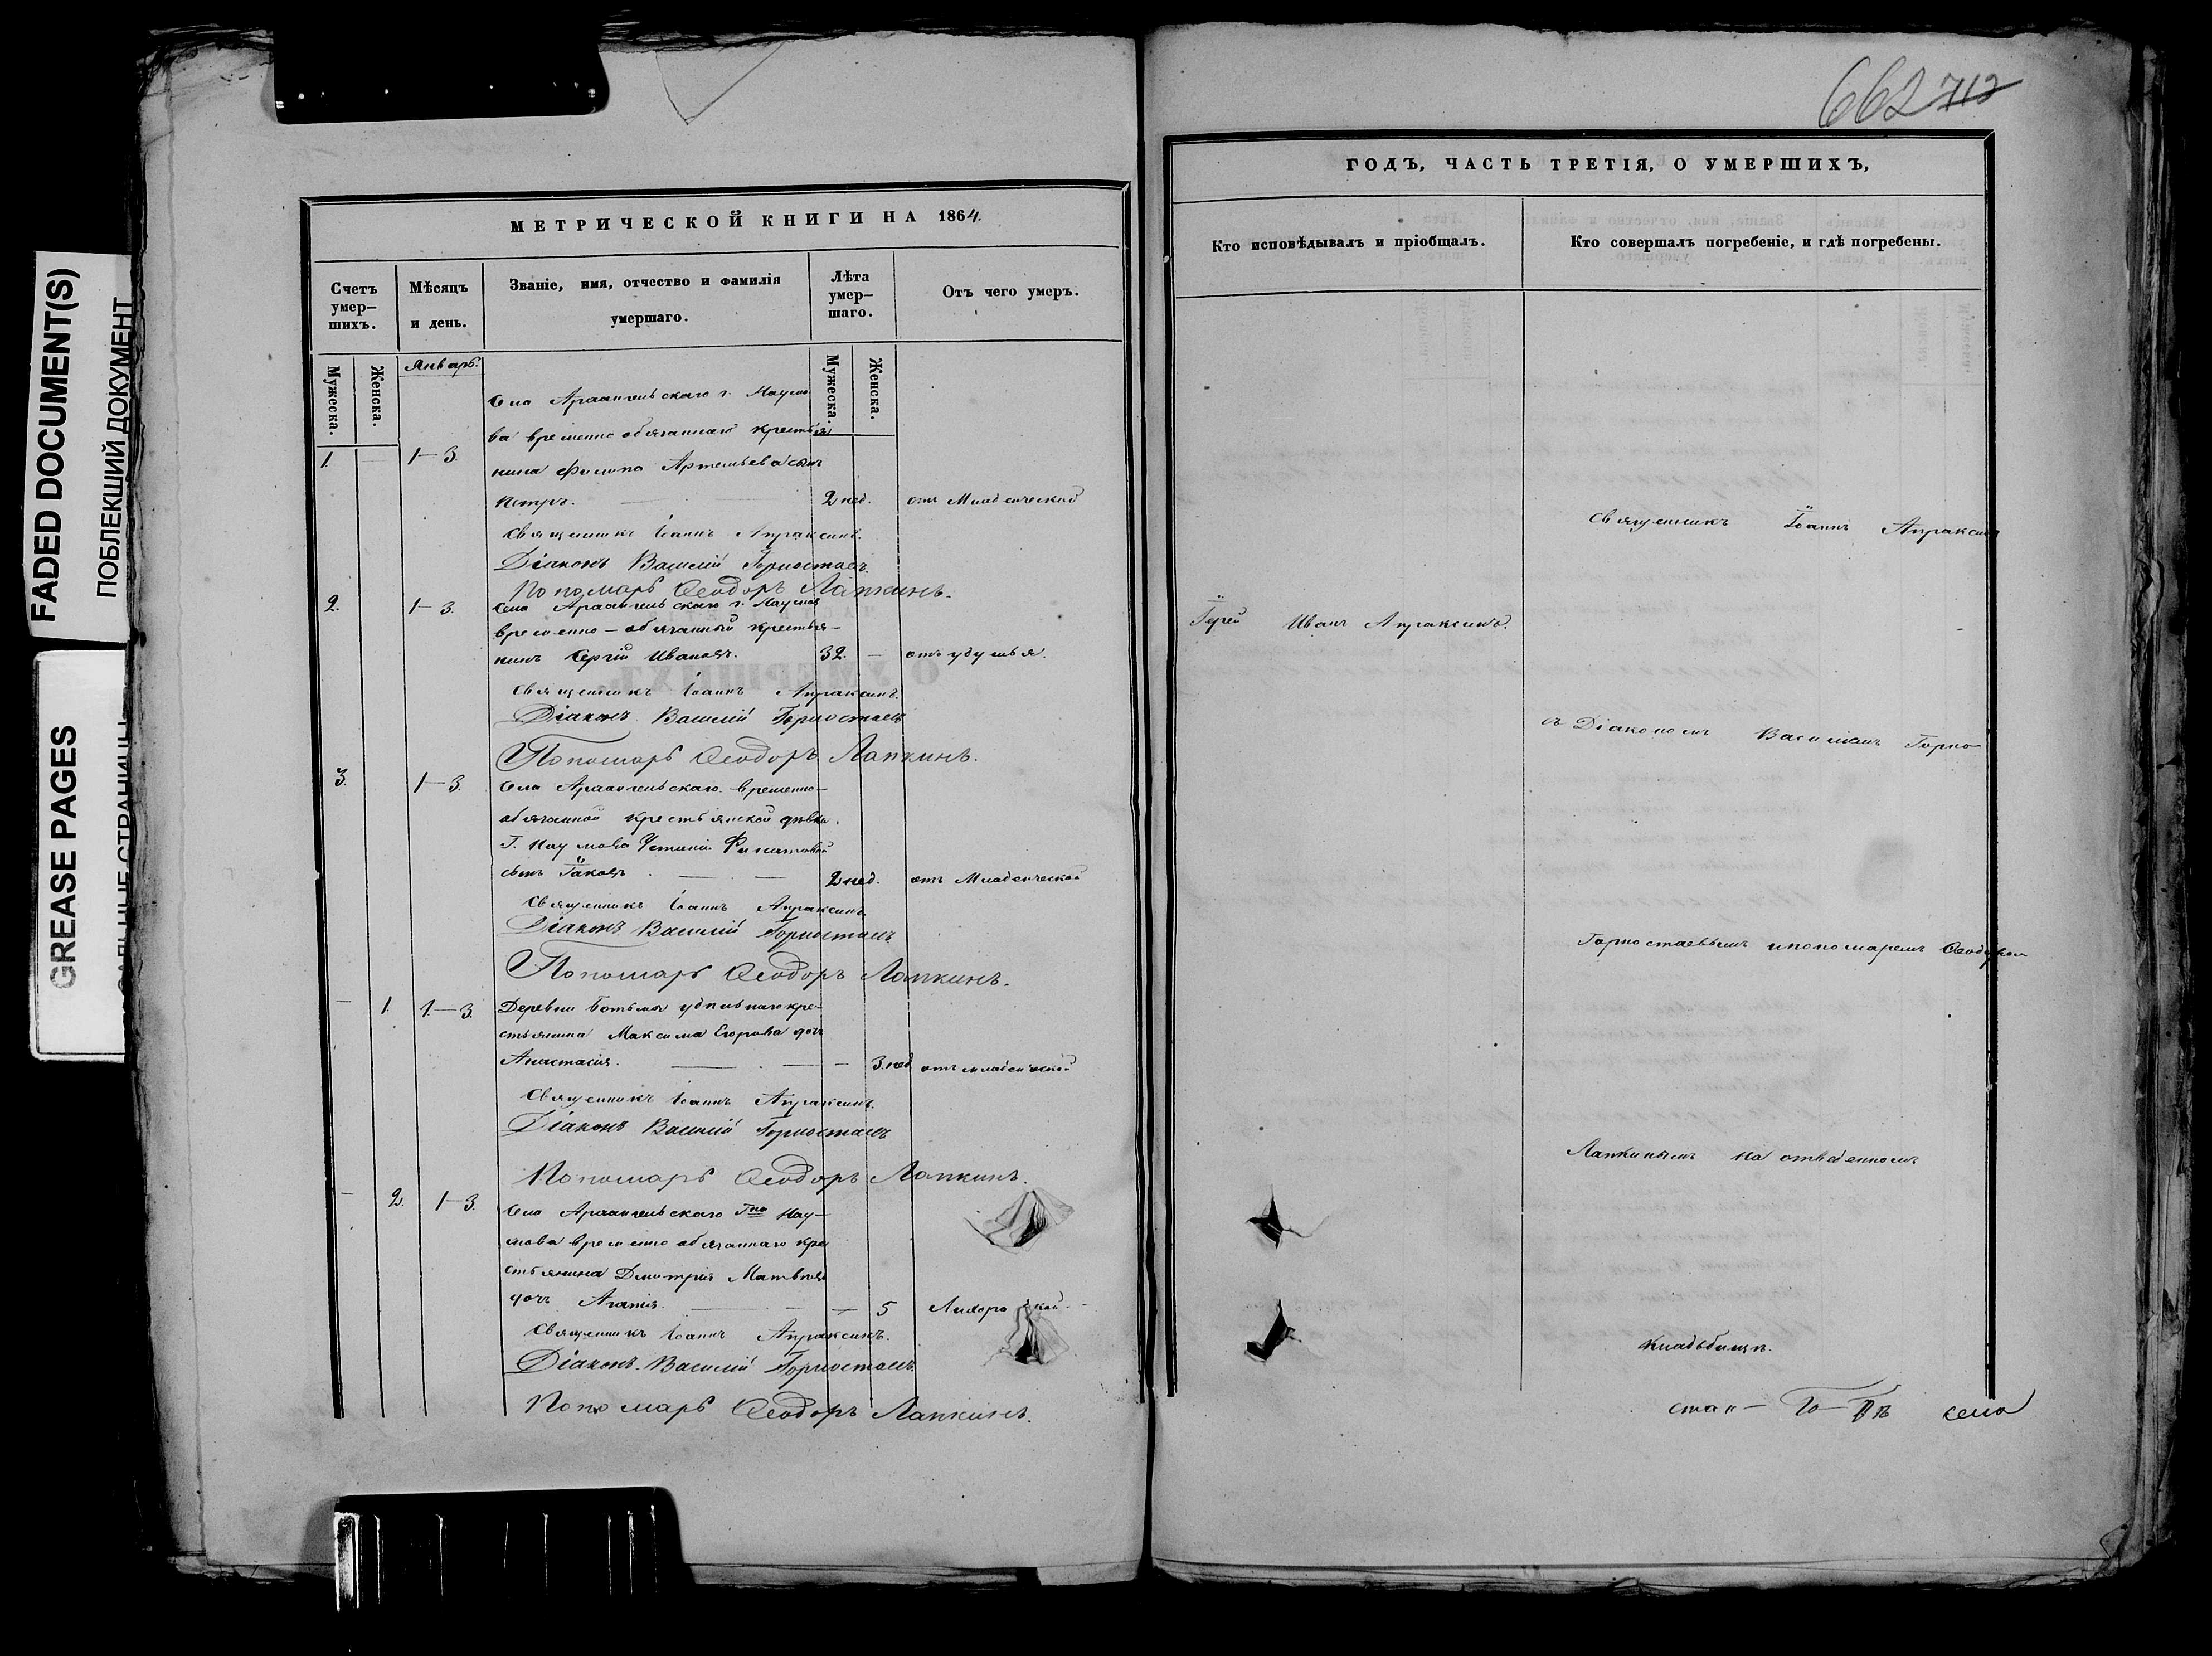 FADED DOCUMENT(S)
ПОБЛЕКШИЙ ДОКУМЕНТ
GREASE PAGES
МЕТРИЧЕСКОЙ КНИГИ НА 1864.
Счетъ умер-шихъ.
Мѣсяцъ и день.
Званіе, имя, отчество и фамилія умершаго.
Лѣта умер-шаго.
Отъ чего умеръ.
Мужеска.
Женска.
Январь.
Мужеска.
Женска.
Села Архангельскаго г. Наумо
ва временно обязаннаго крестья
1. — 1-3. нина Филипа Артемьева сынъ
Петръ. 2 нед. отъ Младенческой
Священникъ Іоаннъ Апраксинъ.
Діаконъ Василій Горностаевъ.
Пономарь Ѳеодоръ Лапкинъ.
2. 1-3. Села Архангельскаго г. Наумова
временно-обязанный крестья-
нинъ Сергій Ивановъ. 32. — отъ удушья.
Священникъ Іоаннъ Апраксинъ.
Діаконъ Василій Горностаевъ
Пономарь Ѳеодоръ Лапкинъ.
3. 1-3. Села Архангельскаго временно-
обязанной крестьянской дѣвки
Г. Наумова Устиніи Филатовой
сынъ Іаковъ. 2 нед. отъ Младенческой
Священникъ Іоаннъ Апраксинъ.
Діаконъ Василій Горностаевъ
Пономарь Ѳеодоръ Лапкинъ.
— 1. 1-3. Деревни Ботьмы удѣльнаго кре-
стьянина Максима Егорова дочь
Анастасія. — 3. нед отъ младенческой
Священникъ Іоаннъ Апраксинъ.
Діаконъ Василій Горностаевъ
Пономарь Ѳеодоръ Лапкинъ.
— 2. 1-3. Села Архангельскаго Гна Нау-
мова временно обязаннаго кре
стьянина Дмитрія Матвѣева
дочь Агапія. — 5 Лихорадкой.
Священникъ Іоаннъ Апраксинъ.
Діаконъ Василій Горностаевъ.
Пономарь Ѳеодоръ Лапкинъ.
662 712
ГОДЪ, ЧАСТЬ ТРЕТІЯ, О УМЕРШИХЪ,
Кто исповѣдывалъ и пріобщалъ.
Кто совершалъ погребеніе, и гдѣ погребены.
Священникъ Іоаннъ Апраксинъ
Іерей Иванъ Апраксинъ.
съ Діакономъ Василіемъ Горно
Горностаевымъ и пономаремъ Ѳеодоромъ
Лапкинымъ на отведенномъ
кладбищѣ.
села